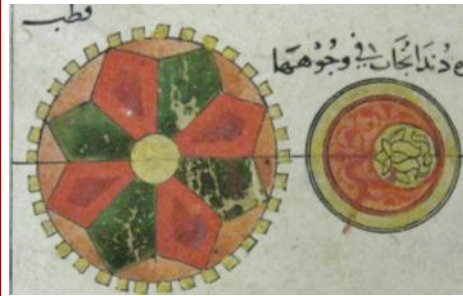 قطب
دندانجات في وجوهها